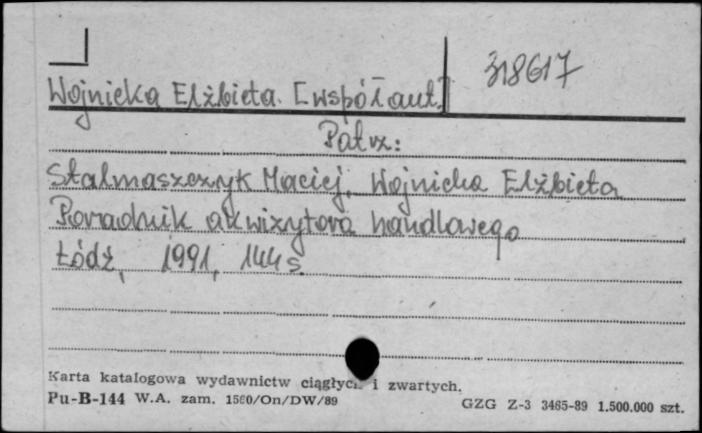 318617
Wojnicka Elżbieta. [współaut.]
Patrz:
Stalmaszczyk Maciej, Wojnicka Elżbieta
Poradnik akwizytora handlowego
Łódź, 1991, 144 s.
Karta katalogowa wydawnictw ciągłych i zwartych.
Pu-B-144 W.A. zam. 1560/On/DW/89
GZG Z-3 3465-89 1.500.000 szt.